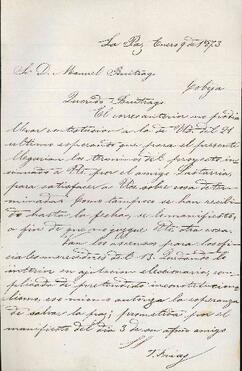 La Paz Enero 9 de 1873
Sr. D. Manuel Buitrago
Cobija
Querido Buitrago
El correo anterior no podia
llevar contestacion a la de Ud. del 21
ultimo esperando que para el presente
llegarian los terminos del proyecto, in
sinuado a por el amigo Lastarria,
para satisfacer a Ud. sobre cosa deter
minada. Como tampoco se han recibi
do hasta la fecha, se lo manifiesto,
a fin de que no otra cosa.
Van los ascensos para los ofi
ciales del 3. Quedando de
interin en agitacion eleccionaria, com
plicada de pretendido inconstitucio
nalismo, eso mismo autoriza la esperanza
de salvar la paz; prometida por el
manifiesto del dia 3 de su afmo amigo